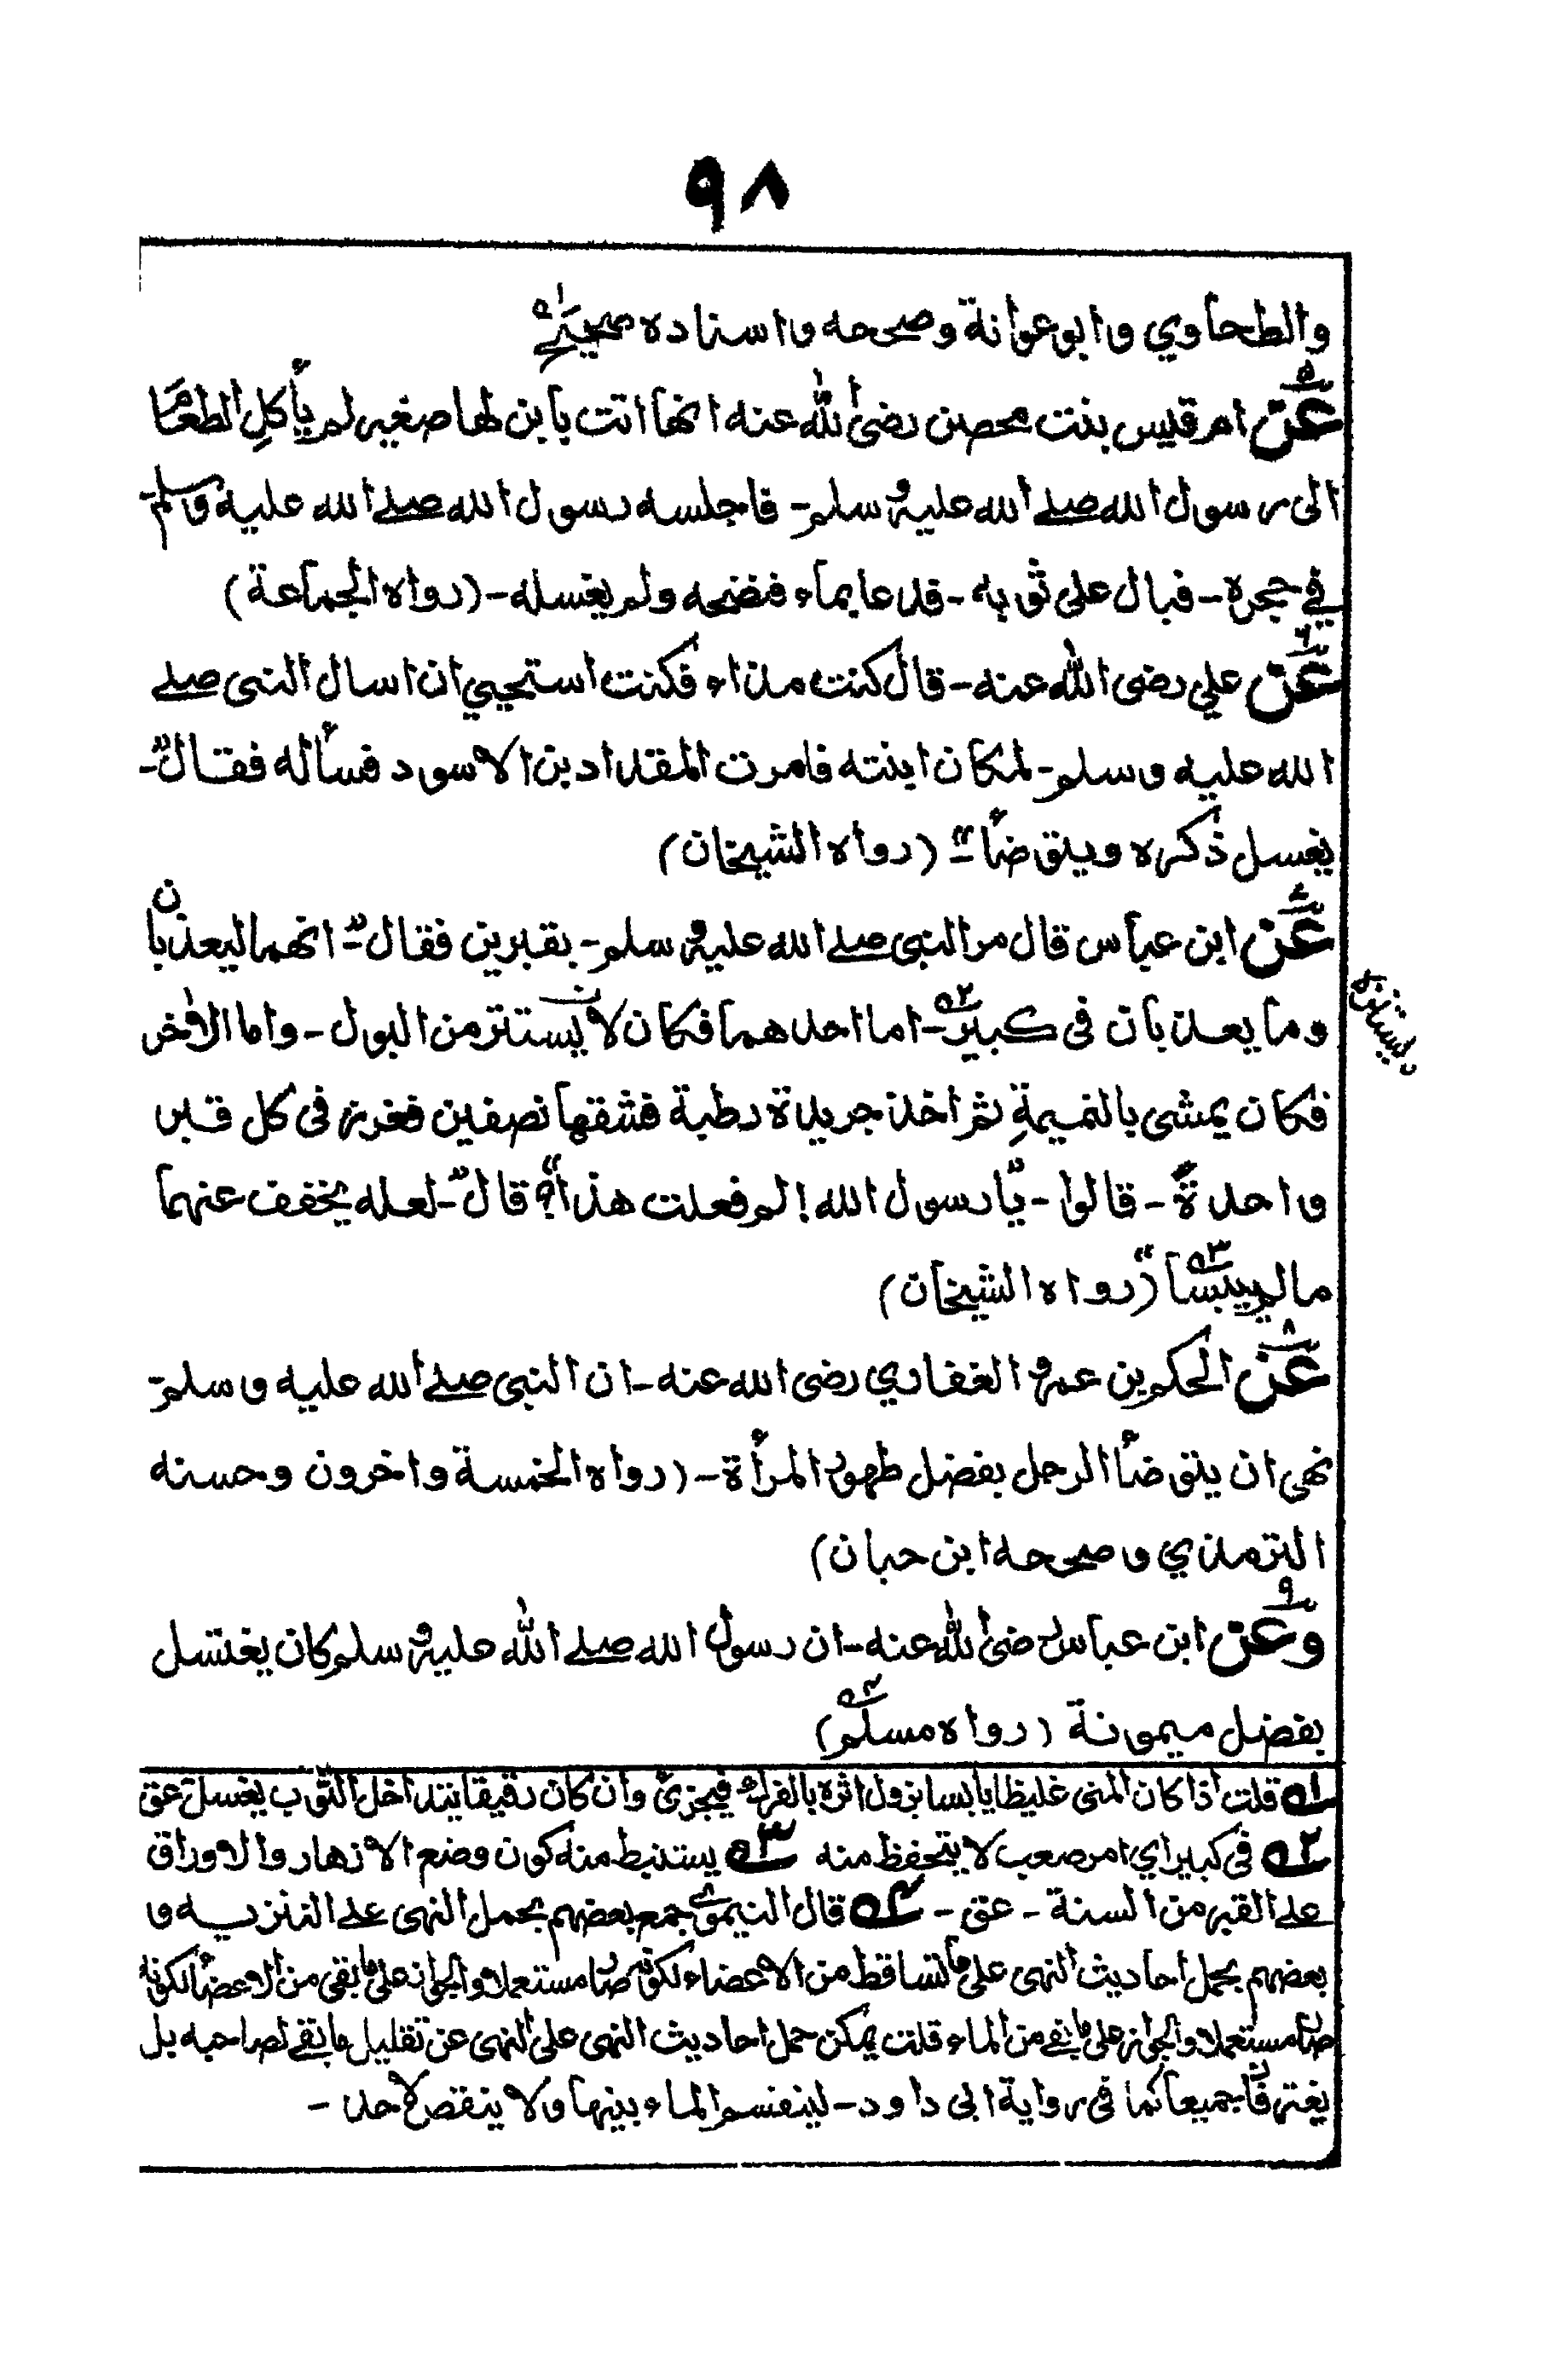 ٩٨
والطحاوي وابو عوانة وصححه واسناده صحيح ١ه
٥ عن ام قيس بنت محصن رضى الله عنه انها اتت بابن لها صغير لم يأكل الطعام
الى رسول الله صلے الله عليه وسلم - فاجلسه رسول الله صلے الله عليه وسلم -
في حجره - فبال على ثوبه - فدعا بماء فنضحه ولم يغسله - (رواه الجماعة)
٦ عن علي رضى الله عنه - قال كنت مذاء فكنت استحيي ان اسال النبى صلے
الله عليه وسلم - لمكان ابنته فامرت المقداد بن الاسود فسأله فقال "-
يغسل ذكره ويتوضأ -" (رواه الشيخان)
٧ عن ابن عباس قال مر النبى صلے الله عليه وسلم - بقبرين فقال "- انهما ليعذبان
وما يعذبان فى كبير ٢ه - اما احدهما فكان لا يستتر ن من البول - واما الاٰخر
ن يستنزه
فكان يمشى بالنميمةِ ثم اخذ جريدة رطبة فشقها نصفين فغرز فى كل قبر
واحدةً - قالوا - "يا رسول الله! لم فعلت هذا؟" قال "- لعله يخفف عنهما
مالم ييبسا ٣ه" (رواه الشيخان)
٨ عن الحكم بن عمرو الغفاري رضى الله عنه - ان النبى صلے الله عليه وسلم -
نهى ان يتوضأ الرجل بفضل طهور المرأة - (رواه الخمسة واخرون وحسنه
الترمذي وصححه ابن حبان)
٩ وعن ابن عباس رضى الله عنه - ان رسول الله صلے الله عليه وسلم كان يغتسل
بفضل ميمونة (رواه مسلم ٤ه)
١ه قلت اذا كان المنى غليظا يابسا يزول اثره بالفرك فيجزئ وان كان رقيقا يتداخل الثوب يغسل عق
٢ه فى كبير اي امر صعب لا يتحفظ منه ٣ه يستنبط منه كون وضع الازهار والاوراق
علے القبر من السنة - عق - ٤ه قال النيموى جمع بعضهم بحمل النهى علے التنزيه و
بعضهم بحمل احاديث النهى على ما تساقط من الاعضاء لكونه صار مستعملا والجواز على ما بقى من الاعضا لكونه
صار مستعملا والجواز على ما بقے من الماء قلت يمكن حمل احاديث النهى على النهى عن تقليل ما بقے لصاحبه بل
يغترفا جميعا كما فى رواية ابى داود - لينقسم الماء بينهما ولا ينقص لاحد -